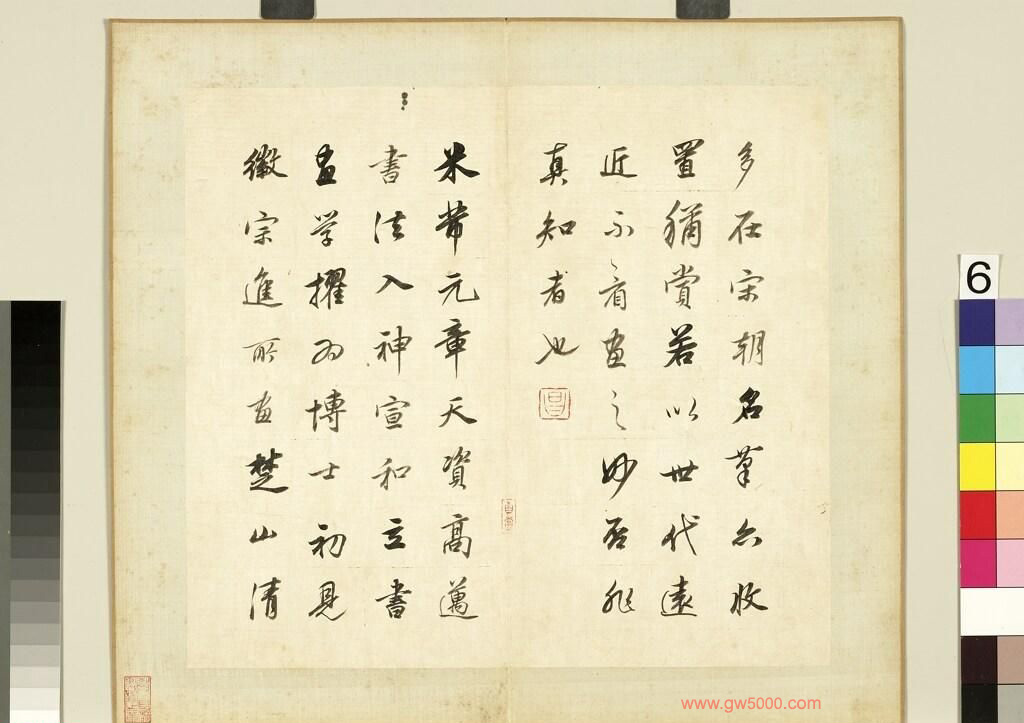 多在宋朝名笔亦收
置犹賞若以世代遠
近不看画之妙否非
真知者也
米芾元章天資高邁
書法入神宣和立書
画学擢為博士初見
徽宗進所画楚山清
6
www.gw5000.com